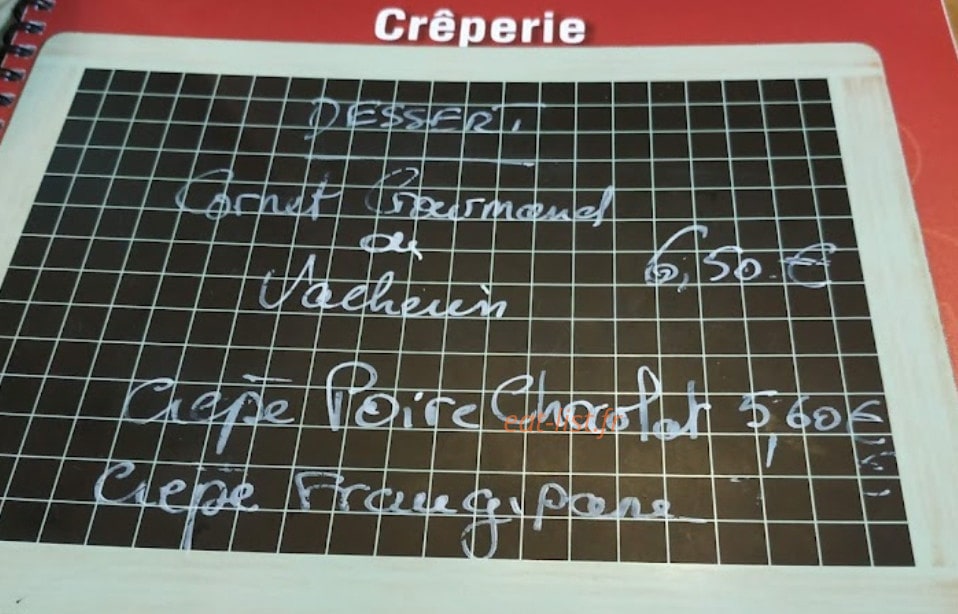 Crêperie
DESSERT.
Cornet Gourmand
ou
Vacherin 6,50 €
Crêpe Poire Chocolat 5,60 €
eat-list.fr
Crêpe Frangipane